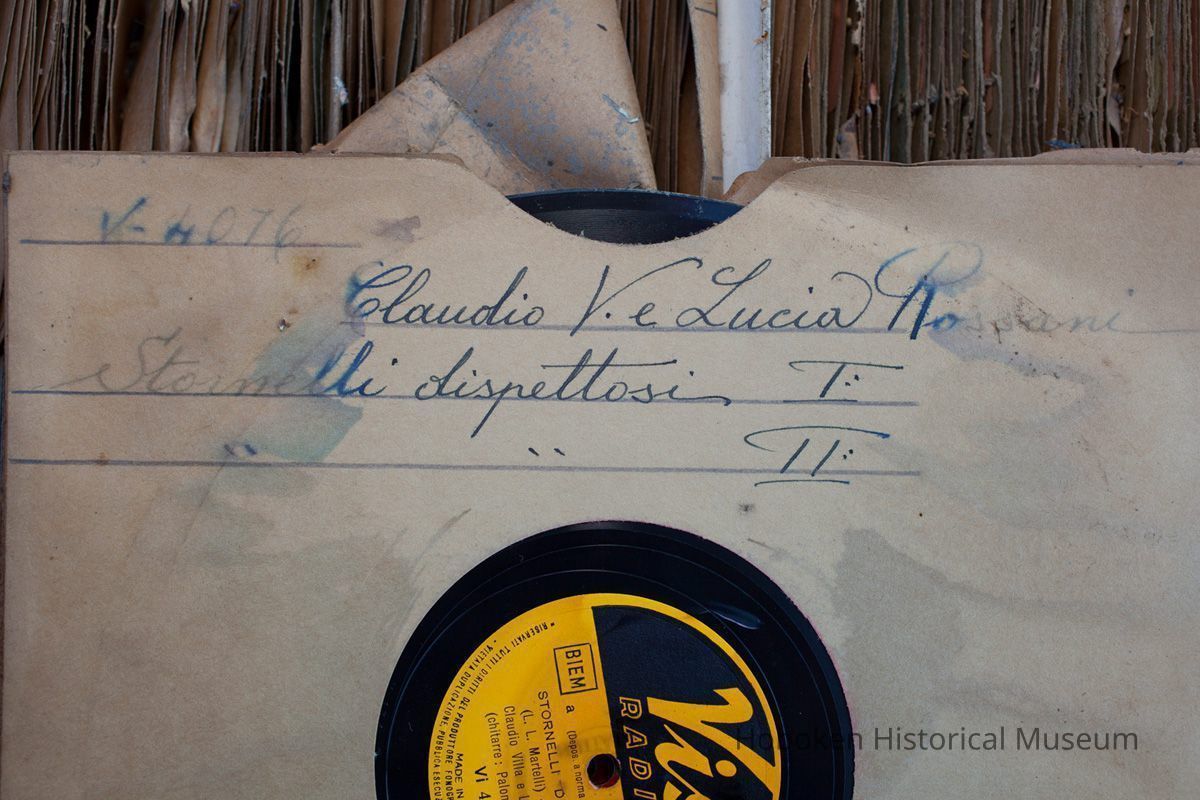 V-4076
Claudio V. e Lucia Rossani
Stornelli dispettosi I:
" " II:
RISERVATI TUTTI I DIRITTI DEL PRODUTTORE FONOGR
VIETATA DUPLICAZIONE, PUBBLICA ESECU
MADE IN
BIEM
a
(Depos. a norma
STORNELLI D
(L. L. Martelli)
Claudio Villa e L
(chitarre: Palom
Vi 4
Vis
RADI
Hoboken Historical Museum